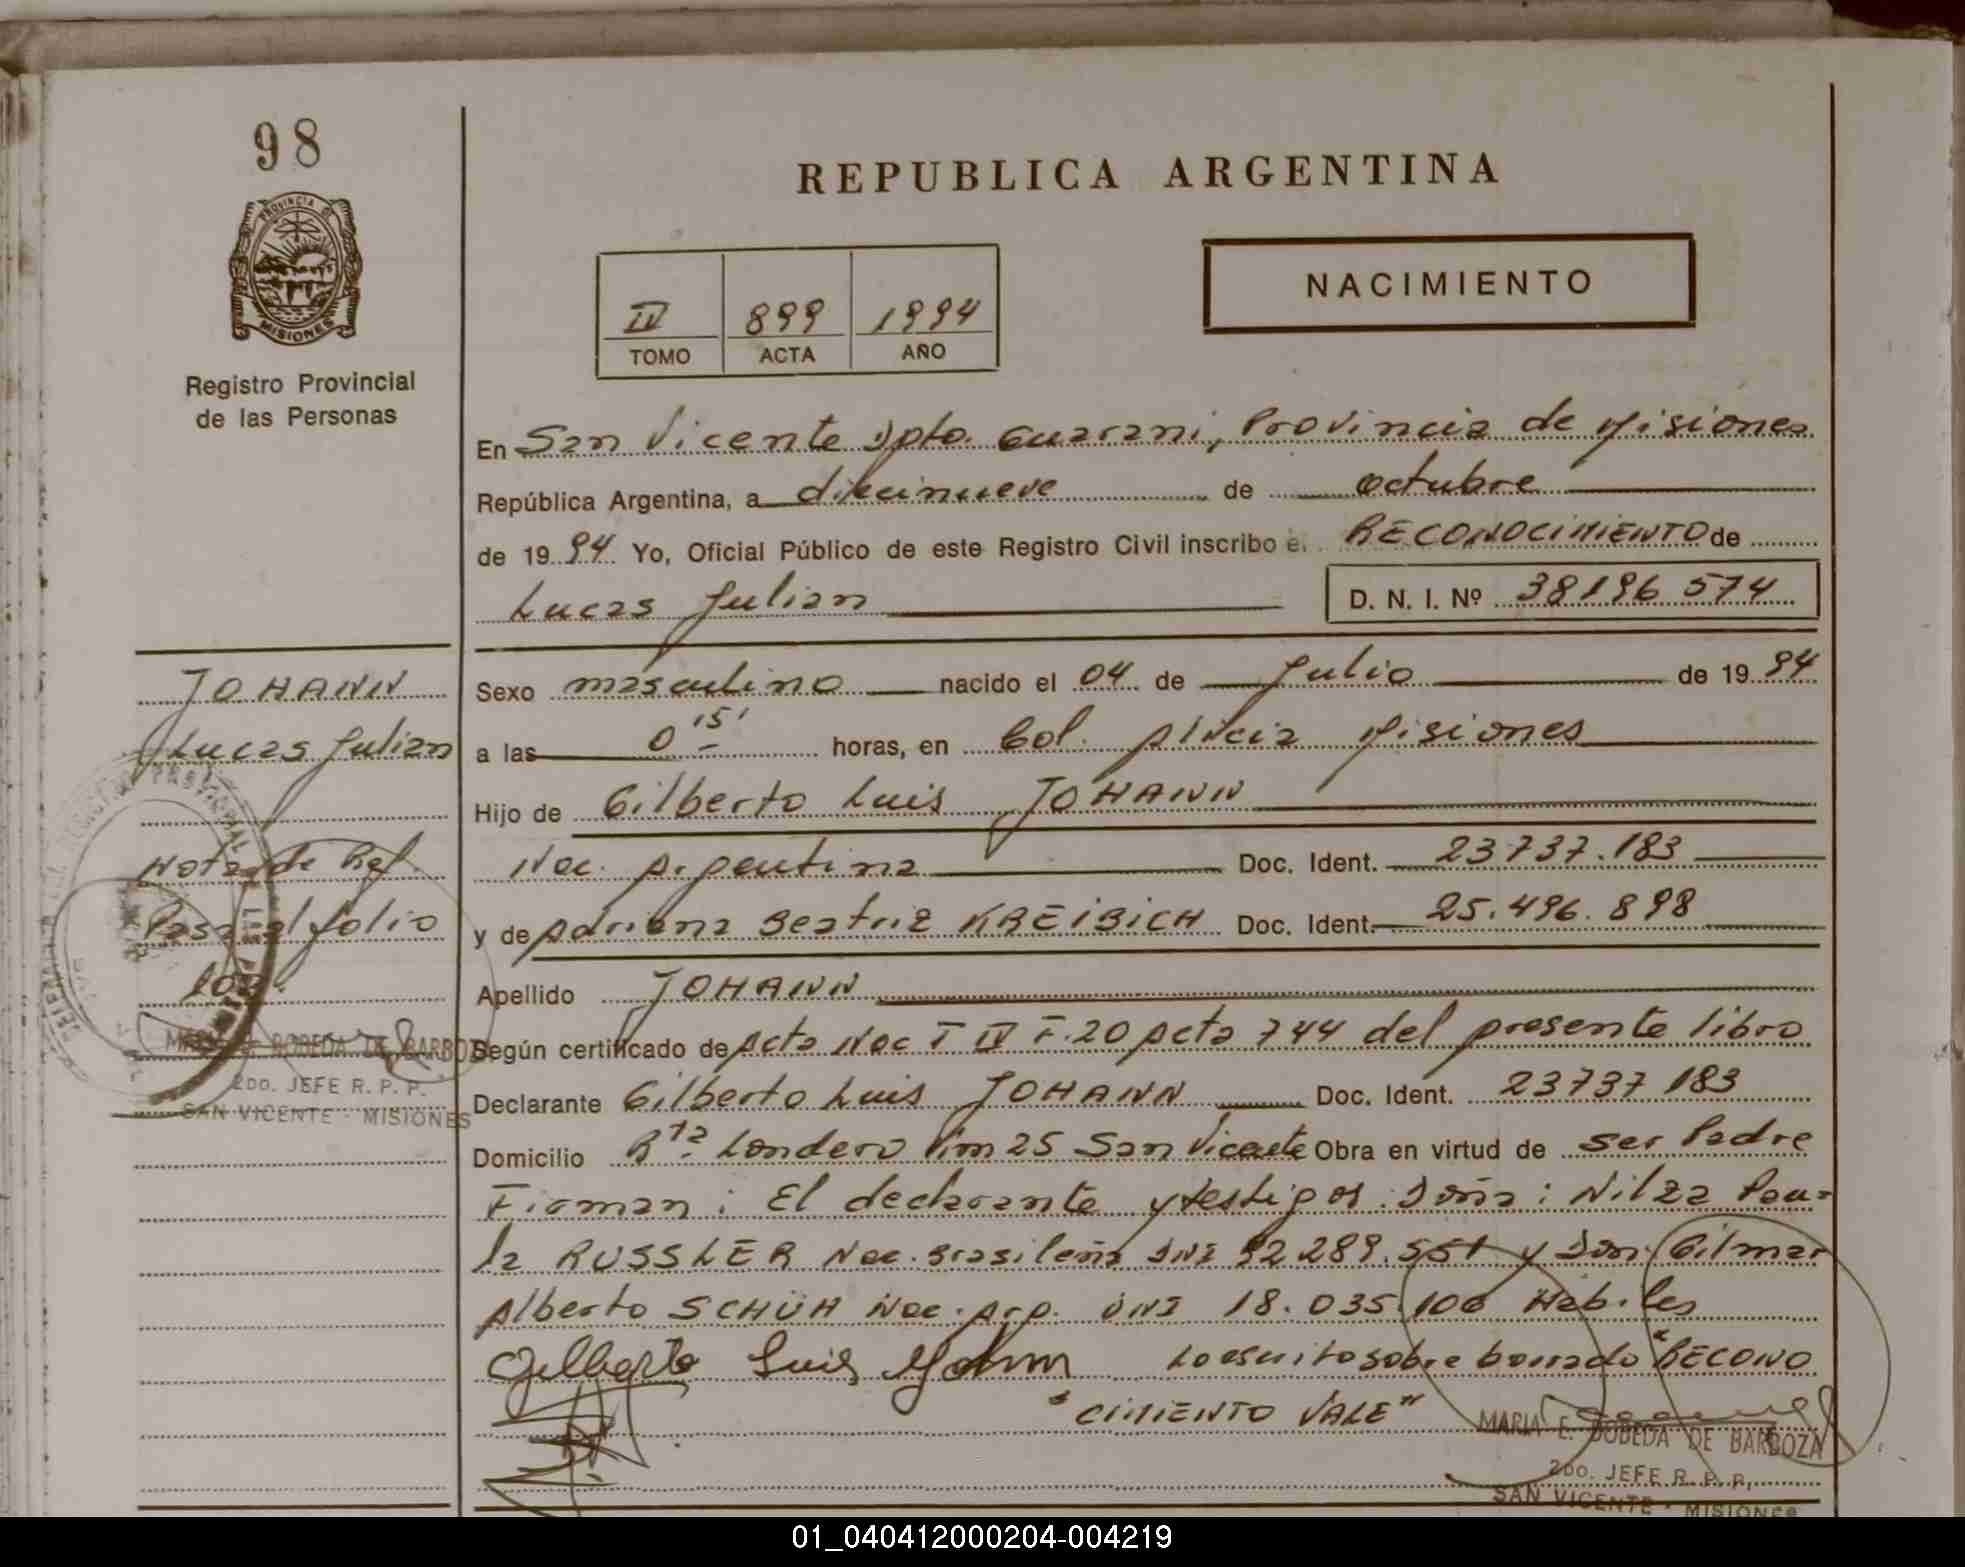 98
REPUBLICA ARGENTINA
PROVINCIA DE
MISIONES
Registro Provincial
de las Personas
NACIMIENTO
IV 899 1994
TOMO ACTA AÑO
En San Vicente Dpto. Guarani, Provincia de Misiones
República Argentina, a diecinueve de octubre
de 1994 Yo, Oficial Público de este Registro Civil inscribo e. RECONOCIMIENTO de
Lucas Julian D. N. I. Nº 38196 574
Sexo masculino nacido el 04 de Julio de 1994
a las 0 15' horas, en Col. Alicia Misiones
Hijo de Gilberto Luis JOHANN
Nac. Argentina Doc. Ident. 23737.183
y de Adriana Beatriz KREIBICH Doc. Ident. 25.496.898
Apellido JOHANN
Según certificado de Acta Nac T IV F.20 Acta 744 del presente libro
Declarante Gilberto Luis JOHANN Doc. Ident. 23737 183
Domicilio Rta. Londero Km 25 San Vicente Obra en virtud de ser Padre
Firman: El declarante y testigos Doña: Nilza Pau-
la RUSSLER Nac. Brasileña DNI 92 289.551 y Don: Gilmar
Alberto SCHÜH Nac. Arg. DNI 18.035.106 Habiles
Gilberto Luis Johann Lo escrito sobre borrado "RECONO
"CIMIENTO VALE"
MARIA E. BOBEDA DE BARBOZA
2DO. JEFE R. P. P.
SAN VICENTE - MISIONES
JOHANN
Lucas Julian
Nota de Ref.
Pasa al folio
MARIA E. BOBEDA DE BARBOZA
2DO. JEFE R. P. P.
SAN VICENTE - MISIONES
01_040412000204-004219